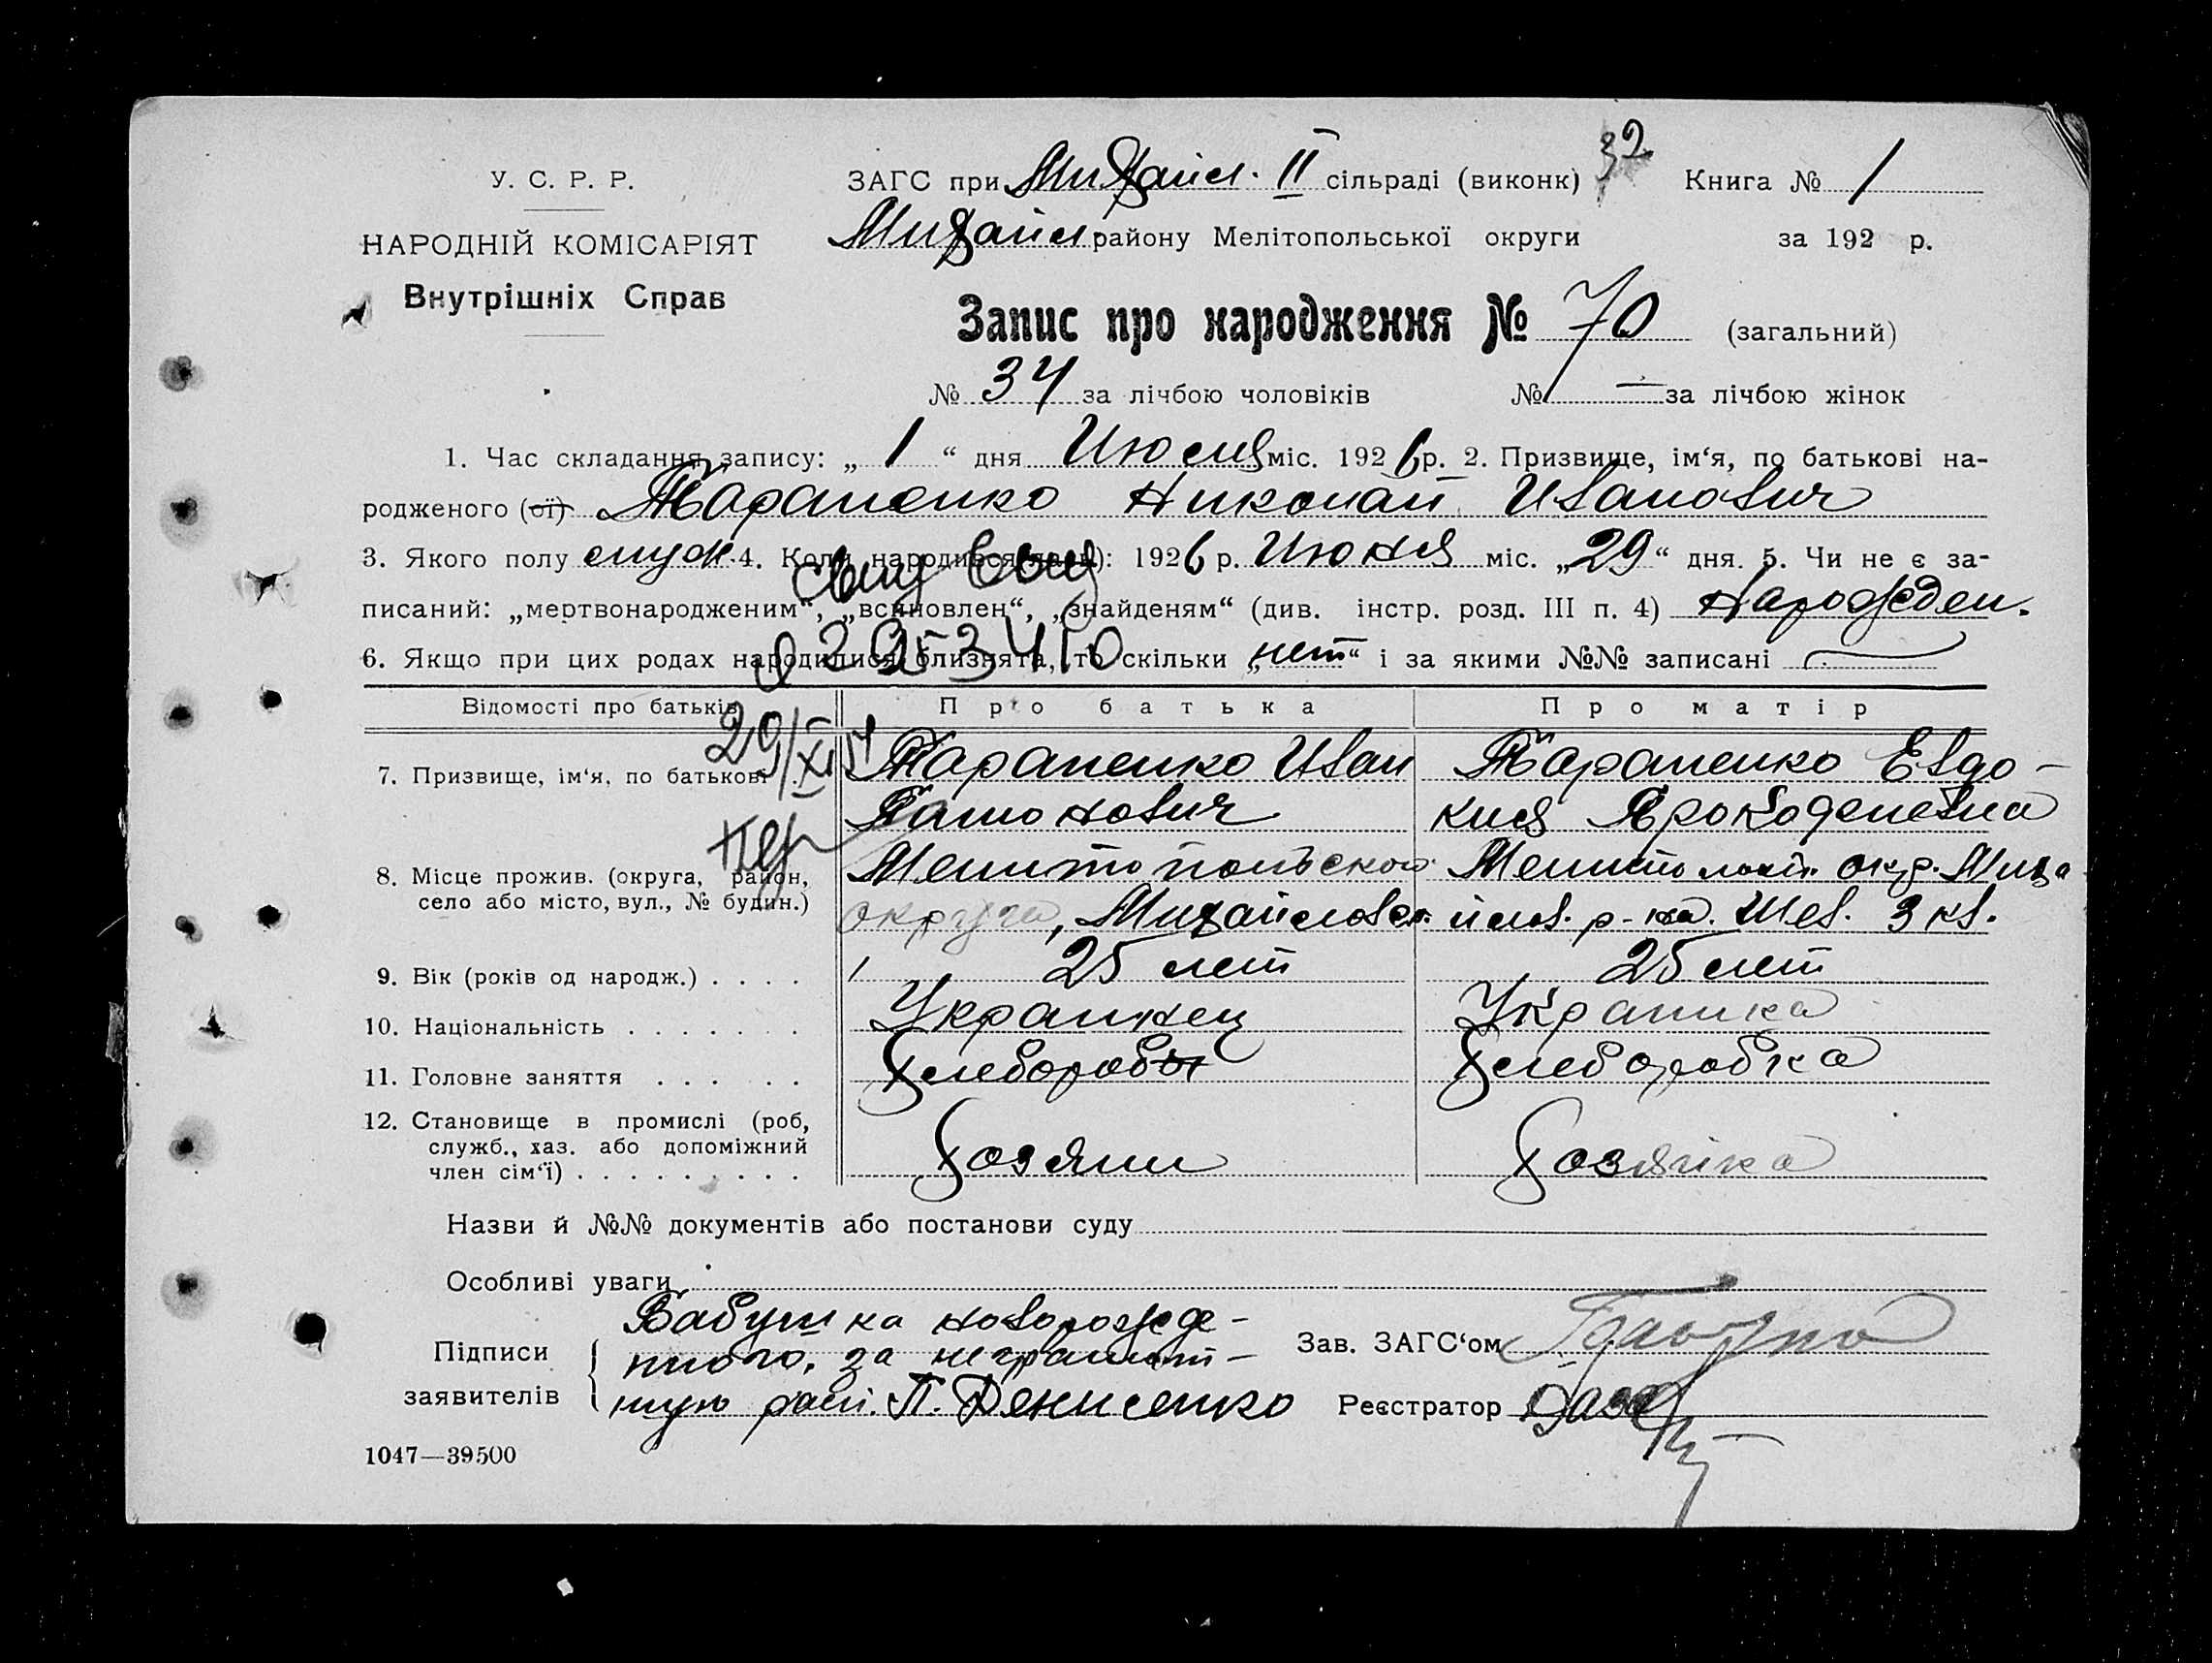 У. С. Р. Р.
НАРОДНІЙ КОМІСАРІЯТ
Внутрішніх Справ
ЗАГС при Михайл. II сільраді (виконк) 32 Книга № 1
Михайл району Мелітопольської округи за 192 р.
Запис про народження № 70 (загальний)
№ 34 за лічбою чоловіків № — за лічбою жінок
1. Час складання запису: „ 1 “ дня Июля міс. 1926 р. 2. Призвище, ім‘я, по батькові на-
родженого (ої) Тараненко Николай Иванович
3. Якого полу муж. 4. Коли народився (лась): 1926 р. Июня міс. „29“ дня. 5. Чи не є за-
писаний: „мертвонародженим“, „всиновлен“, „знайденям“ (див. інстр. розд. III п. 4) Народжден.
6. Якщо при цих родах народилися близнята, то скільки „нет“ і за якими №№ записані —
29/XI 54
Відомості про батьків
Про батька
Про матір
7. Призвище, ім‘я, по батькові
Тараненко Иван
Тараненко Евдо-
кия
8. Місце прожив. (округа, район,
село або місто, вул., № будин.)
Мелитопольской
округа, Михайловск.
Мелитопол. окр. Миха
йлов. р-на. Шев. 3 кв.
9. Вік (років од народж.) . . . .
25 лет
25 лет
10. Національність . . . . . . .
Украинец
Украинка
11. Головне заняття . . . . .
Хлебороб
Хлеборобка
12. Становище в промислі (роб,
служб., хаз. або допоміжний
член сім‘ї) . . . . . . . . .
Хозяин
Хозяйка
Назви й №№ документів або постанови суду
Особливі уваги
Підписи
заявителів
Бабушка новорожде-
ного, за неграмот-
ную расп. П. Денисенко
Зав. ЗАГС‘ом
Реєстратор
1047—39500